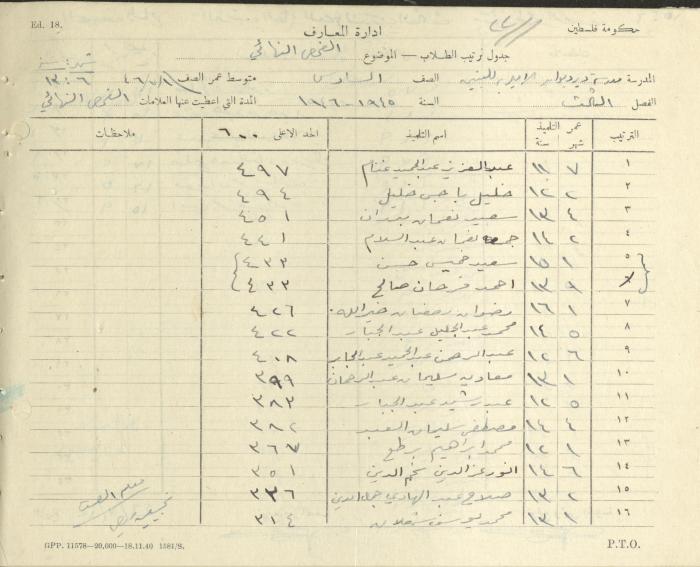 Ed. 18.
حكومة فلسطين
ادارة المعارف
جدول ترتيب الطلاب — الموضوع الفحص النهائي
المدرسة مدرسة ديردبوان الاميرية للبنين الصف السادس متوسط عمر الصف
الفصل الثالث السنة ١٩٤٥-١٩٤٦ المدة التي اعطيت عنها العلامات الفحص النهائي
الترتيب عمر التلميذ شهر سنة اسم التلميذ الحد الاعلى ٦٠٠ ملاحظات
١ ٧ ١١ عبد العزيز عبد الحميد غنام ٤٩٧
٢ ٢ ١٢ خليل حسن خليل ٤٩٤
٣ ٤ ١٣ سعيد نعمان ٤٥١
٤ ٢ ١٤ جمعه نعمان عبد السلام ٤٤١
٥ ١ ١٥ سعيد خميس حسن ٤٣٣
٩ ١٣ احمد فرحان صالح ٤٣٣
٧ ١ ١٦ رضوان رمضان خير الله ٤٢٦
٨ ٥ ١٤ محمد عبد الجليل عبد الجبار ٤٢٢
٩ ٦ ١٢ عبد الرحمن عبد الحميد عبد الجابر ٤٠٨
١٠ ١ ١٣ معاويه سليمان عبد الرحمان ٣٩٩
١١ ٥ ١٢ رشيد عبد الجبار ٣٨٣
١٢ ٤ ١٤ مصطفى سليمان العبد ٣٨٢
١٣ ١ ١٢ محمد ابراهيم ٣٦٧
١٤ ٦ ١٤ انور عز الدين نجم الدين ٣٥١
١٥ ٢ ١٣ صلاح عبد الهادي ٣٣٦
١٦ ١ ١٣ محمد يوسف شعلان ٣١٤
معلم الصف
GPP. 11578—20,000—18.11.40 1581/S.
P.T.O.